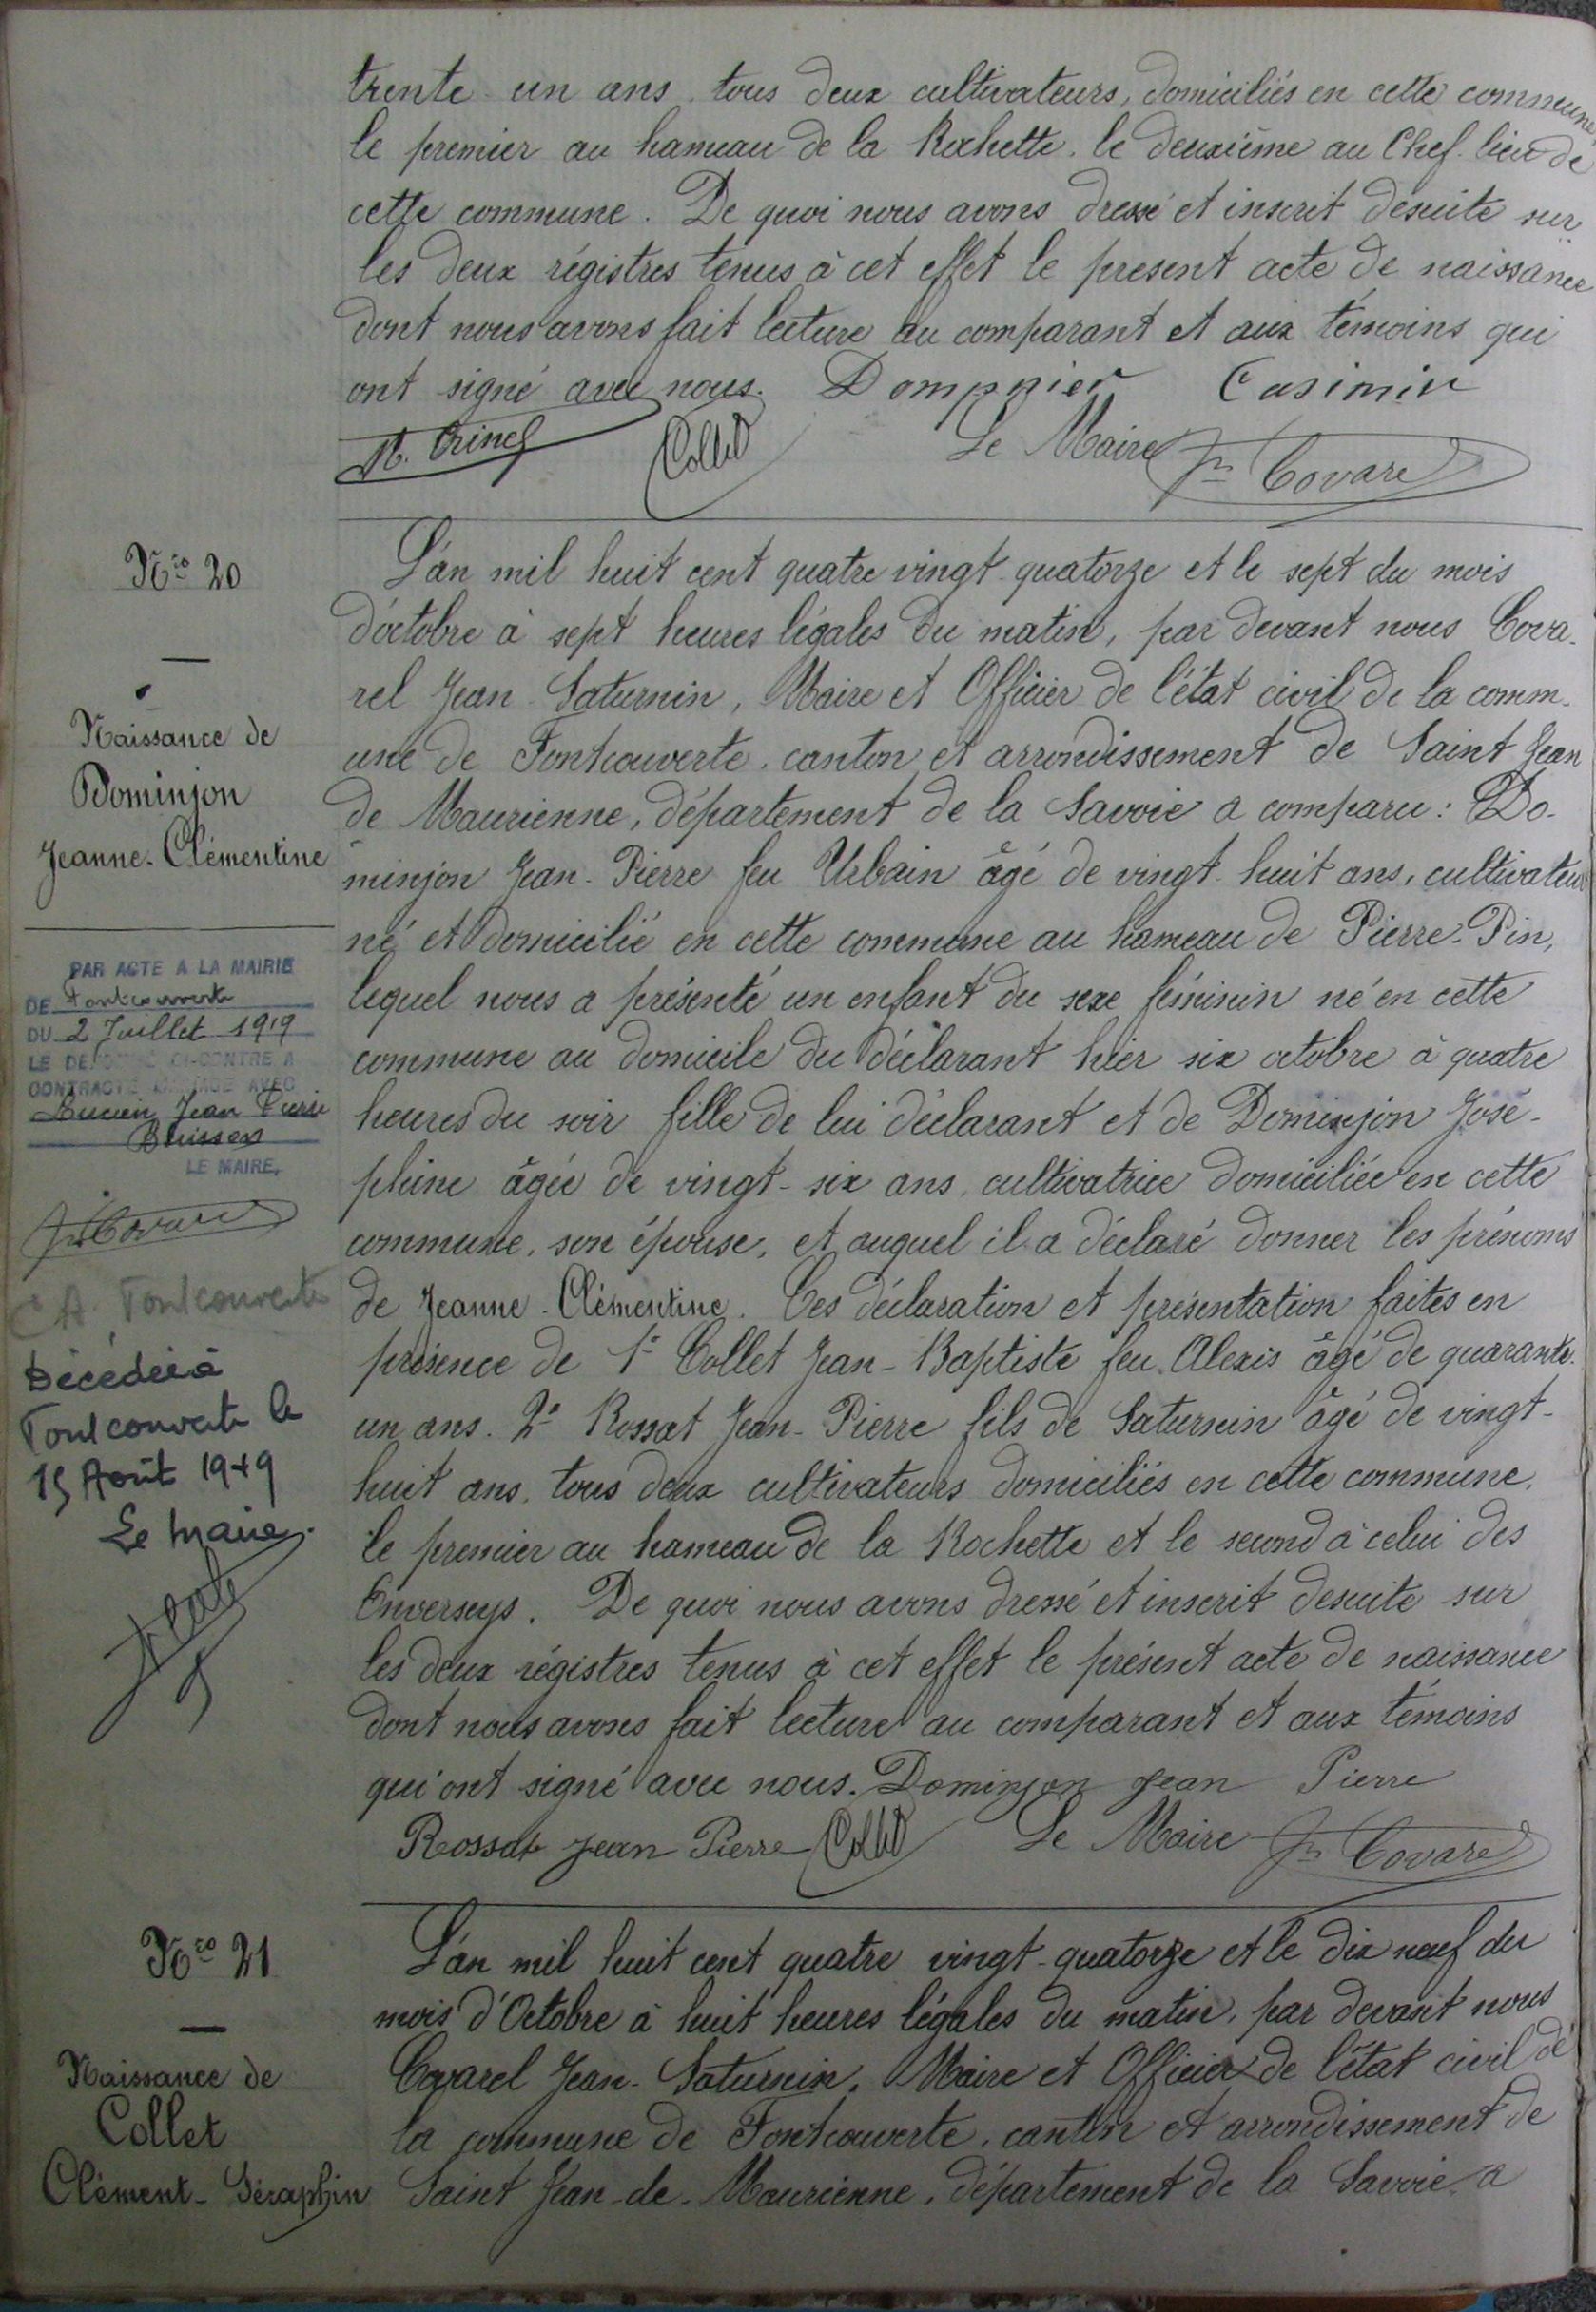 trente un ans, tous deux cultivateurs, domiciliés en cette commune
le premier au hameau de la Rochette, le deuxième au Chef-lieu de
cette commune. De quoi nous avons dressé et inscrit desuite sur
les deux régistres tenus à cet effet le present acte de naissance
dont nous avons fait lecture au comparant et aux témoins qui
ont signé avec nous. Dompnier Casimir
Collet Le Maire Jn Covarel
Nro 20
Naissance de
Dominjon
Jeanne-Clémentine
PAR ACTE A LA MAIRIE
DE Fontcouverte
DU 2 Juillet 1919
LE DÉNOMMÉ CI-CONTRE A
CONTRACTÉ MARIAGE AVEC
Lucien Jean Pierre
LE MAIRE,
Jn Covarel
A Fontcouverte
Décédée à
Fontcouverte le
15 Août 1949
Le Maire.
L'an mil huit cent quatre vingt-quatorze et le sept du mois
d'octobre à sept heures légales du matin, par devant nous Cova-
rel Jean-Saturnin, Maire et Officier de l'état civil de la comm-
une de Fontcouverte, canton et arrondissement de Saint Jean
de Maurienne, département de la Savoie a comparu: Do-
minjon Jean-Pierre feu Urbain âgé de vingt-huit ans, cultivateur
né et domicilié en cette commune au hameau de Pierre-Pin,
lequel nous a présenté un enfant du sexe féminin né en cette
commune au domicile du déclarant hier six octobre à quatre
heures du soir fille de lui déclarant et de Dominjon José-
phine âgée de vingt-six ans, cultivatrice domiciliée en cette
commune, son épouse, et auquel il a déclaré donner les prénoms
de Jeanne-Clémentine. Ces déclaration et présentation faites en
présence de 1° Collet Jean-Baptiste feu Alexis âgé de quarante-
un ans. 2° Rossat Jean-Pierre fils de Saturnin âgé de vingt-
huit ans, tous deux cultivateurs domiciliés en cette commune,
le premier au hameau de la Rochette et le second à celui des
Enverseys. De quoi nous avons dressé et inscrit desuite sur
les deux régistres tenus à cet effet le présent acte de naissance
dont nous avons fait lecture au comparant et aux témoins
qui ont signé avec nous. Dominjon Jean Pierre
Rossat Jean Pierre Collet Le Maire Jn Covarel
Nro 21
Naissance de
Collet
Clément-Séraphin
L'an mil huit cent quatre vingt-quatorze et le dix neuf du
mois d'Octobre à huit heures légales du matin, par devant nous
Covarel Jean-Saturnin, Maire et Officier de l'état civil de
la commune de Fontcouverte, canton et arrondissement de
Saint Jean-de-Maurienne, département de la Savoie a